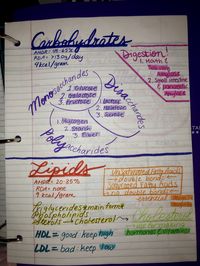 Carbohydrates
AMDR: 45-65%
RDA: >130g/day
4kcal/gram
Digestion!
1. Mouth &
salivary
Amylase
2. Small intestine
& pancreatic
Amylase
Monosaccharides
1. Glucose
2. Galactose
3. Fructose
Disaccharides
1. Lactose
2. Maltose
3. Sucrose
1. Glycogen
2. Starch
3. Fiber
Polysaccharides
Lipids
AMDR= 20-35%
RDA= none
9 kcal/gram
double bond
no double bond
essential
Triglycerides=main form
Phospholipids
Sterols = Cholesterol
HDL = good keep high
LDL = bad keep low
Cholesterol
hormones